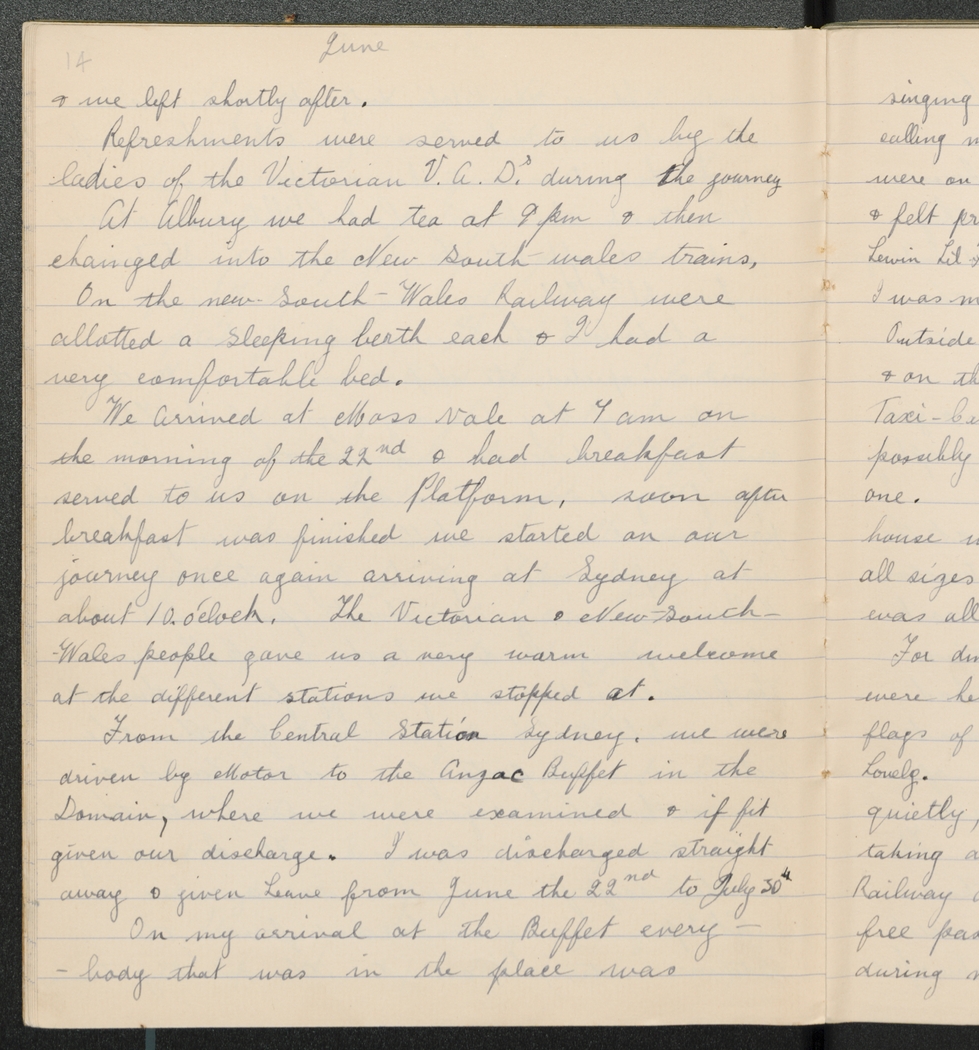 14
June
& we left shortly after.
Refreshments were served to us by the
ladies of the Victorian V. A. D.s during the journey
At Albury we had tea at 9 pm & then
chainged into the New South wales trains,
On the new-South-Wales Railway were
allotted a sleeping berth each & I had a
very comfortable bed.
We arrived at Moss Vale at 7 am on
the morning of the 22nd & had breakfast
served to us on the Platform, soon after
breakfast was finished we started on our
journey once again arriving at Sydney at
about 10. o'clock. The Victorian & New-South-
-Wales people gave us a very warm welcome
at the different stations we stopped at.
From the Central Station Sydney. we were
driven by Motor to the Anzac Buffet in the
Domain, where we were examined & if fit
given our discharge. I was discharged straight
away & given Leave from June the 22nd to July 30th
On my arrival at the Buffet every-
- body that was in the place was
singing
calling
were on
& felt
Lewin Lil &
I was
Outside
& on
Taxi-
possibly
one.
house
all sizes
was all
For
were
flags of
Lovely.
quietly,
taking
Railway
free
during